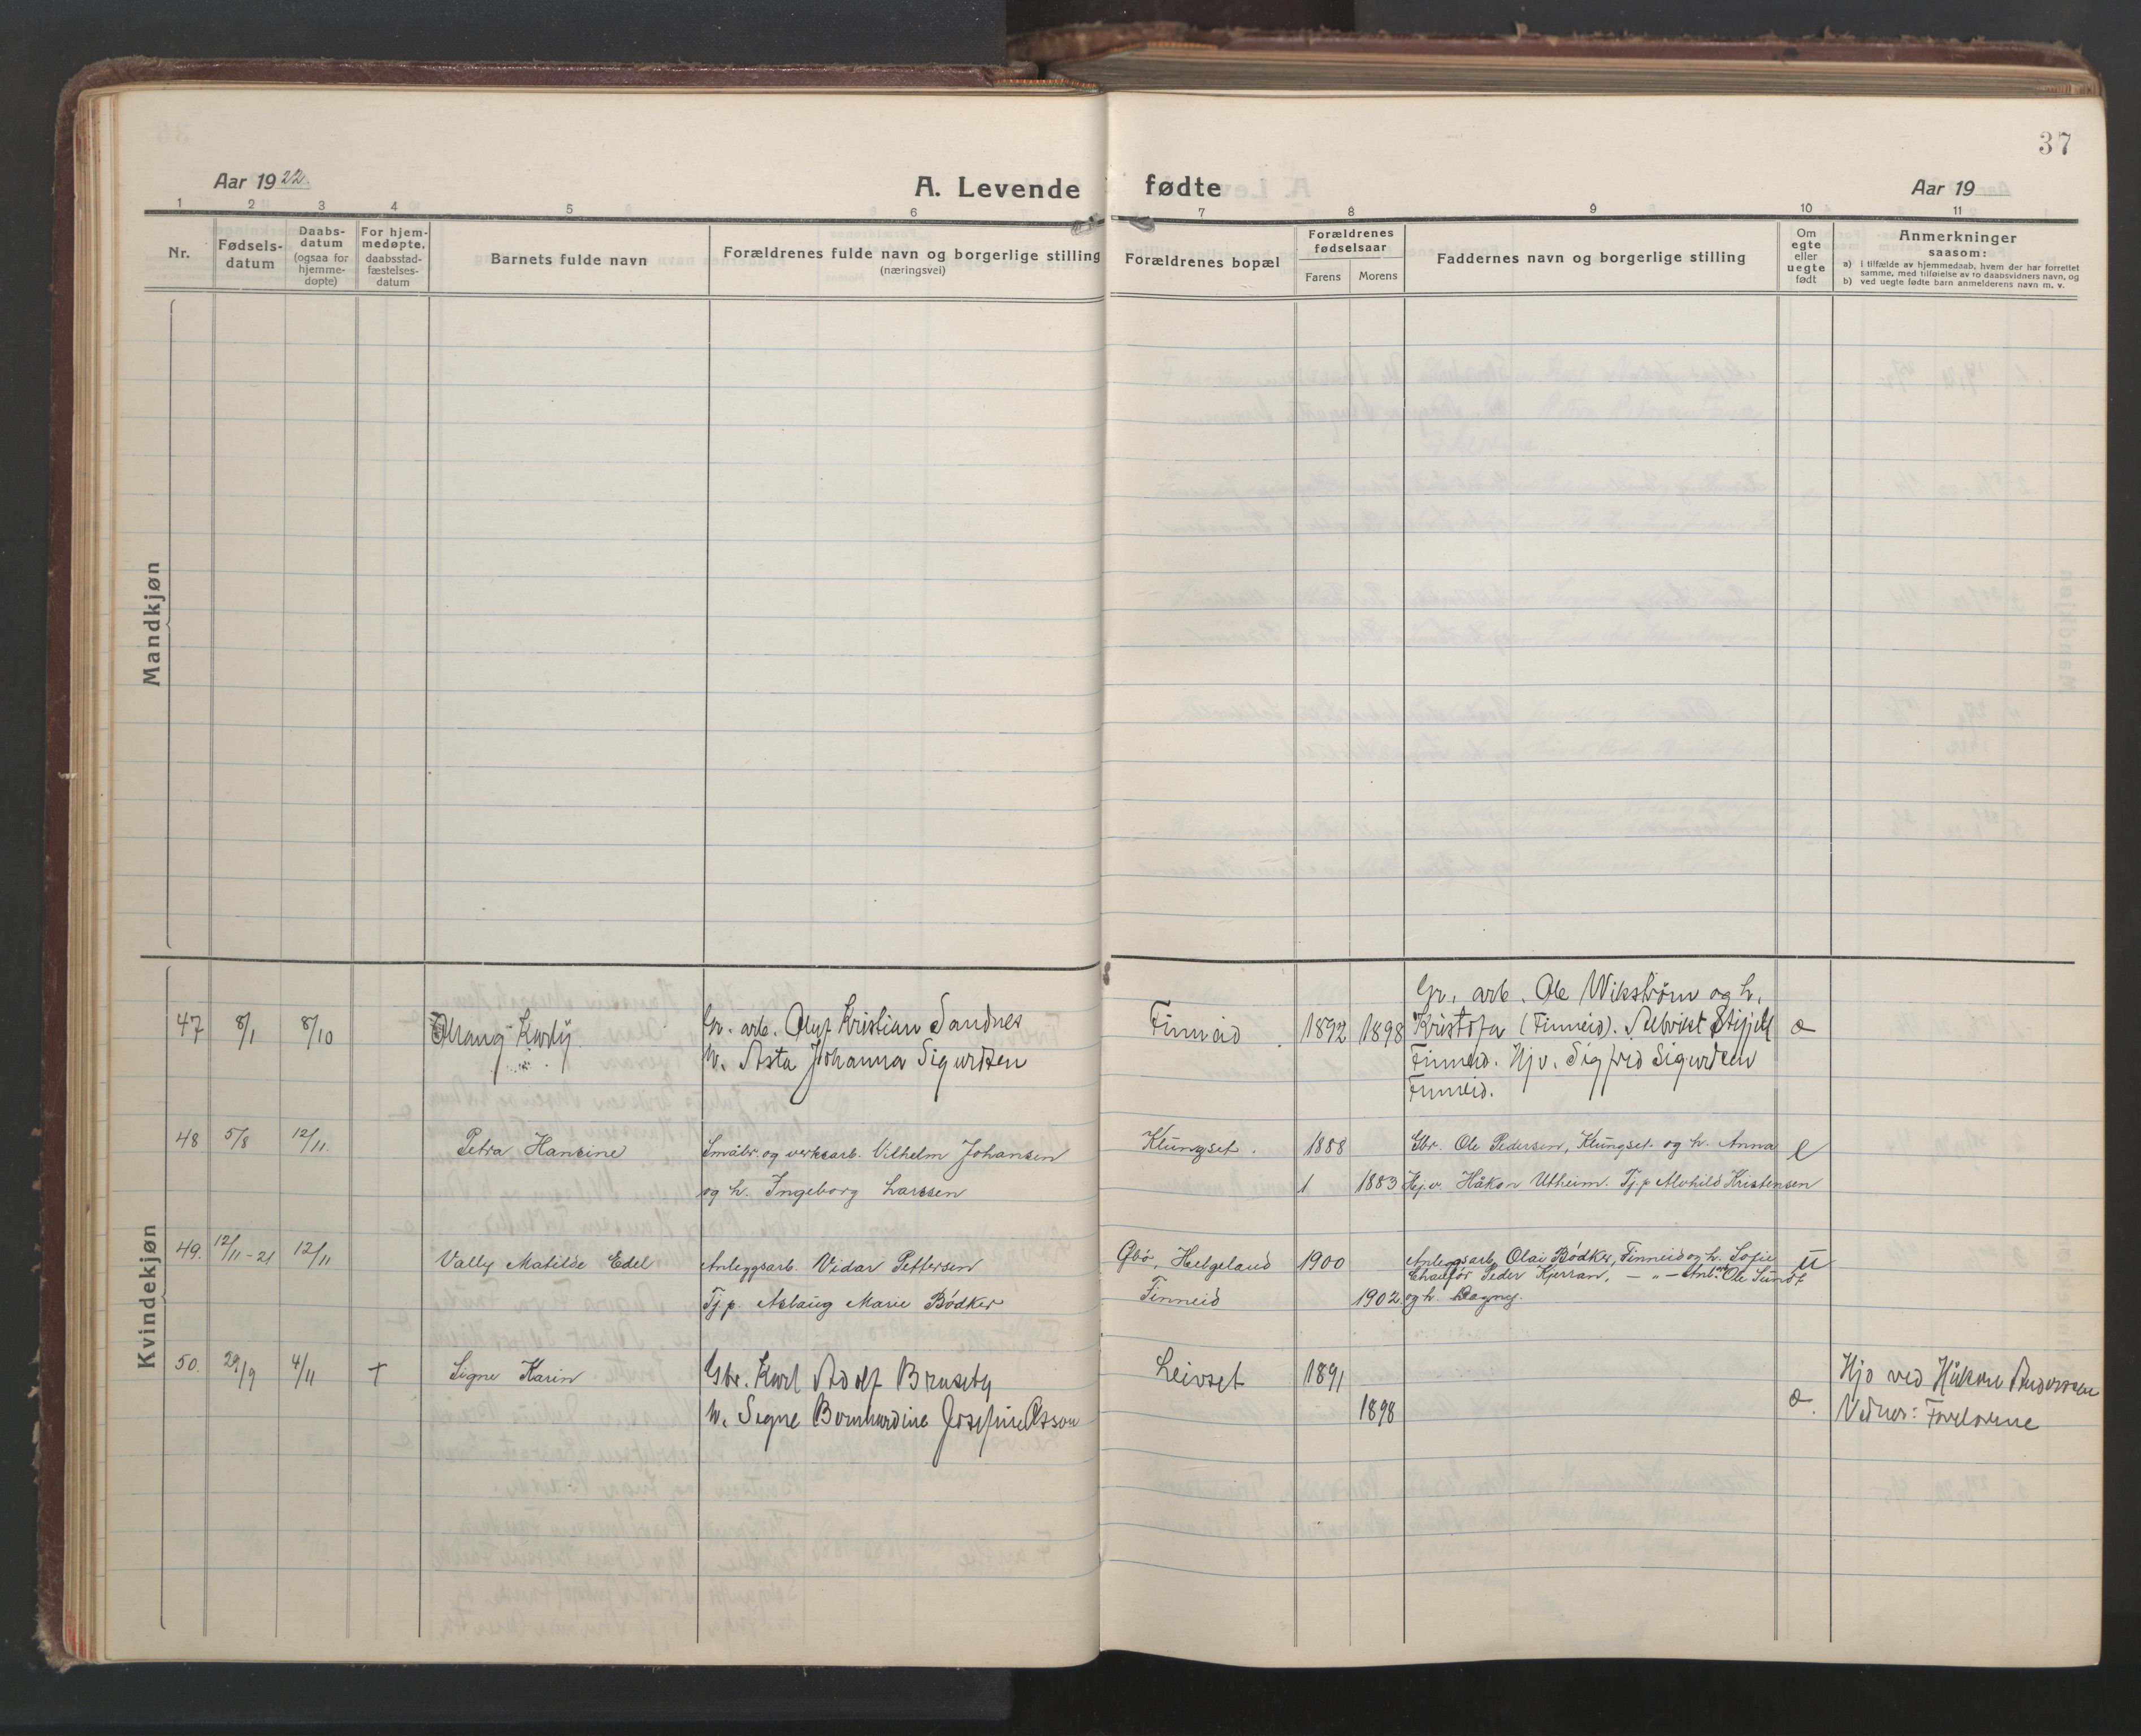 37
Aar 1922.
A. Levende fødte
Aar 19
1 2 3 4 5 6 7 8 9 10 11
Nr.
Fødsels-
datum
Daabs-
datum
(ogsaa for
hjemme-
døpte)
For hjem-
medøpte,
daabsstad-
fæstelses-
datum
Barnets fulde navn
Forældrenes fulde navn og borgerlige stilling
(næringsvei)
Forældrenes bopæl
Forældrenes
fødselsaar
Farens Morens
Faddernes navn og borgerlige stilling
Om
egte
eller
uegte
født
Anmerkninger
saasom:
a) i tilfælde av hjemmedaab, hvem der har forrettet
samme, med tilføielse av to daabsvidners navn, og
b) ved uegte fødte barn anmelderens navn m. v.
Mandkjøn
Kvindekjøn
47 8/1 8/10
Gr. arb. Oluf Kristian Sandnes
Asta Johanna Sigurdsen
Finneid 1892 1898
Gr. arb. Ole Wikstrøm og h.
Kristofa (Finneid).
Finneid. Hjv. Sigfrid Sigurdsen
Finneid.
e
48 5/8 12/11.
Petra Hansine
Småbr. og verksarb. Vilhelm Johansen
og h. Ingeborg Larssen
Klungset. 1888
1883
Gbr. Ole Pedersen, Klungset og h. Anna
Hj.v. Håkon Utheim. Tj.p Alvhild Kristensen
e
49. 12/11-21 12/11
Vally Matilde Edel
Anleggsarb. Vidar Pettersen
Tj.p. Aslaug Marie Bödker
Helgeland 1900
Finneid 1902
Anleggsarb. Olai Bödker, Finneid og h. Sofie
Chaufför Peder Kjerran, — " — Anl. Ole Sundt
og h. Dagny.
u
50. 29/9 4/11 +
Signe Karin
Gbr. Karl Adolf Bruseby
Signe Bernhardine Josefine Olsson
Leivset 1891
1898
e.
Hjd ved Håkon Anderssen
Vidner: Foreldrene